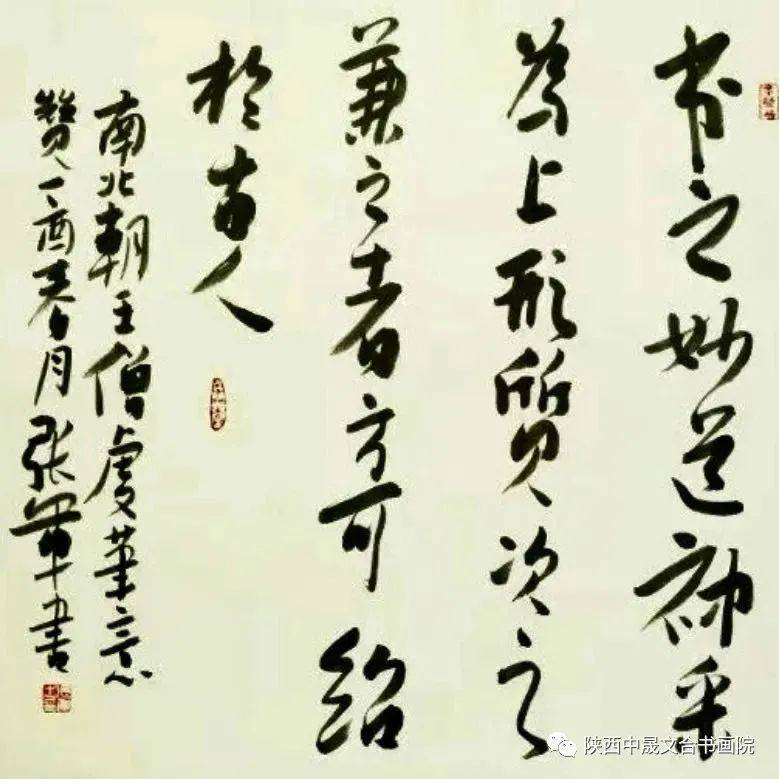 书之妙道神采
為上形質次之
兼之者方可紹
於古人
南北朝王僧虔筆意
贊丁酉春月張書
陕西中晟文台书画院